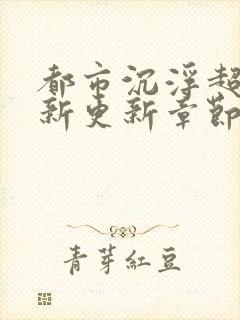 都市沉浮超
新更新章節
青芽紅豆